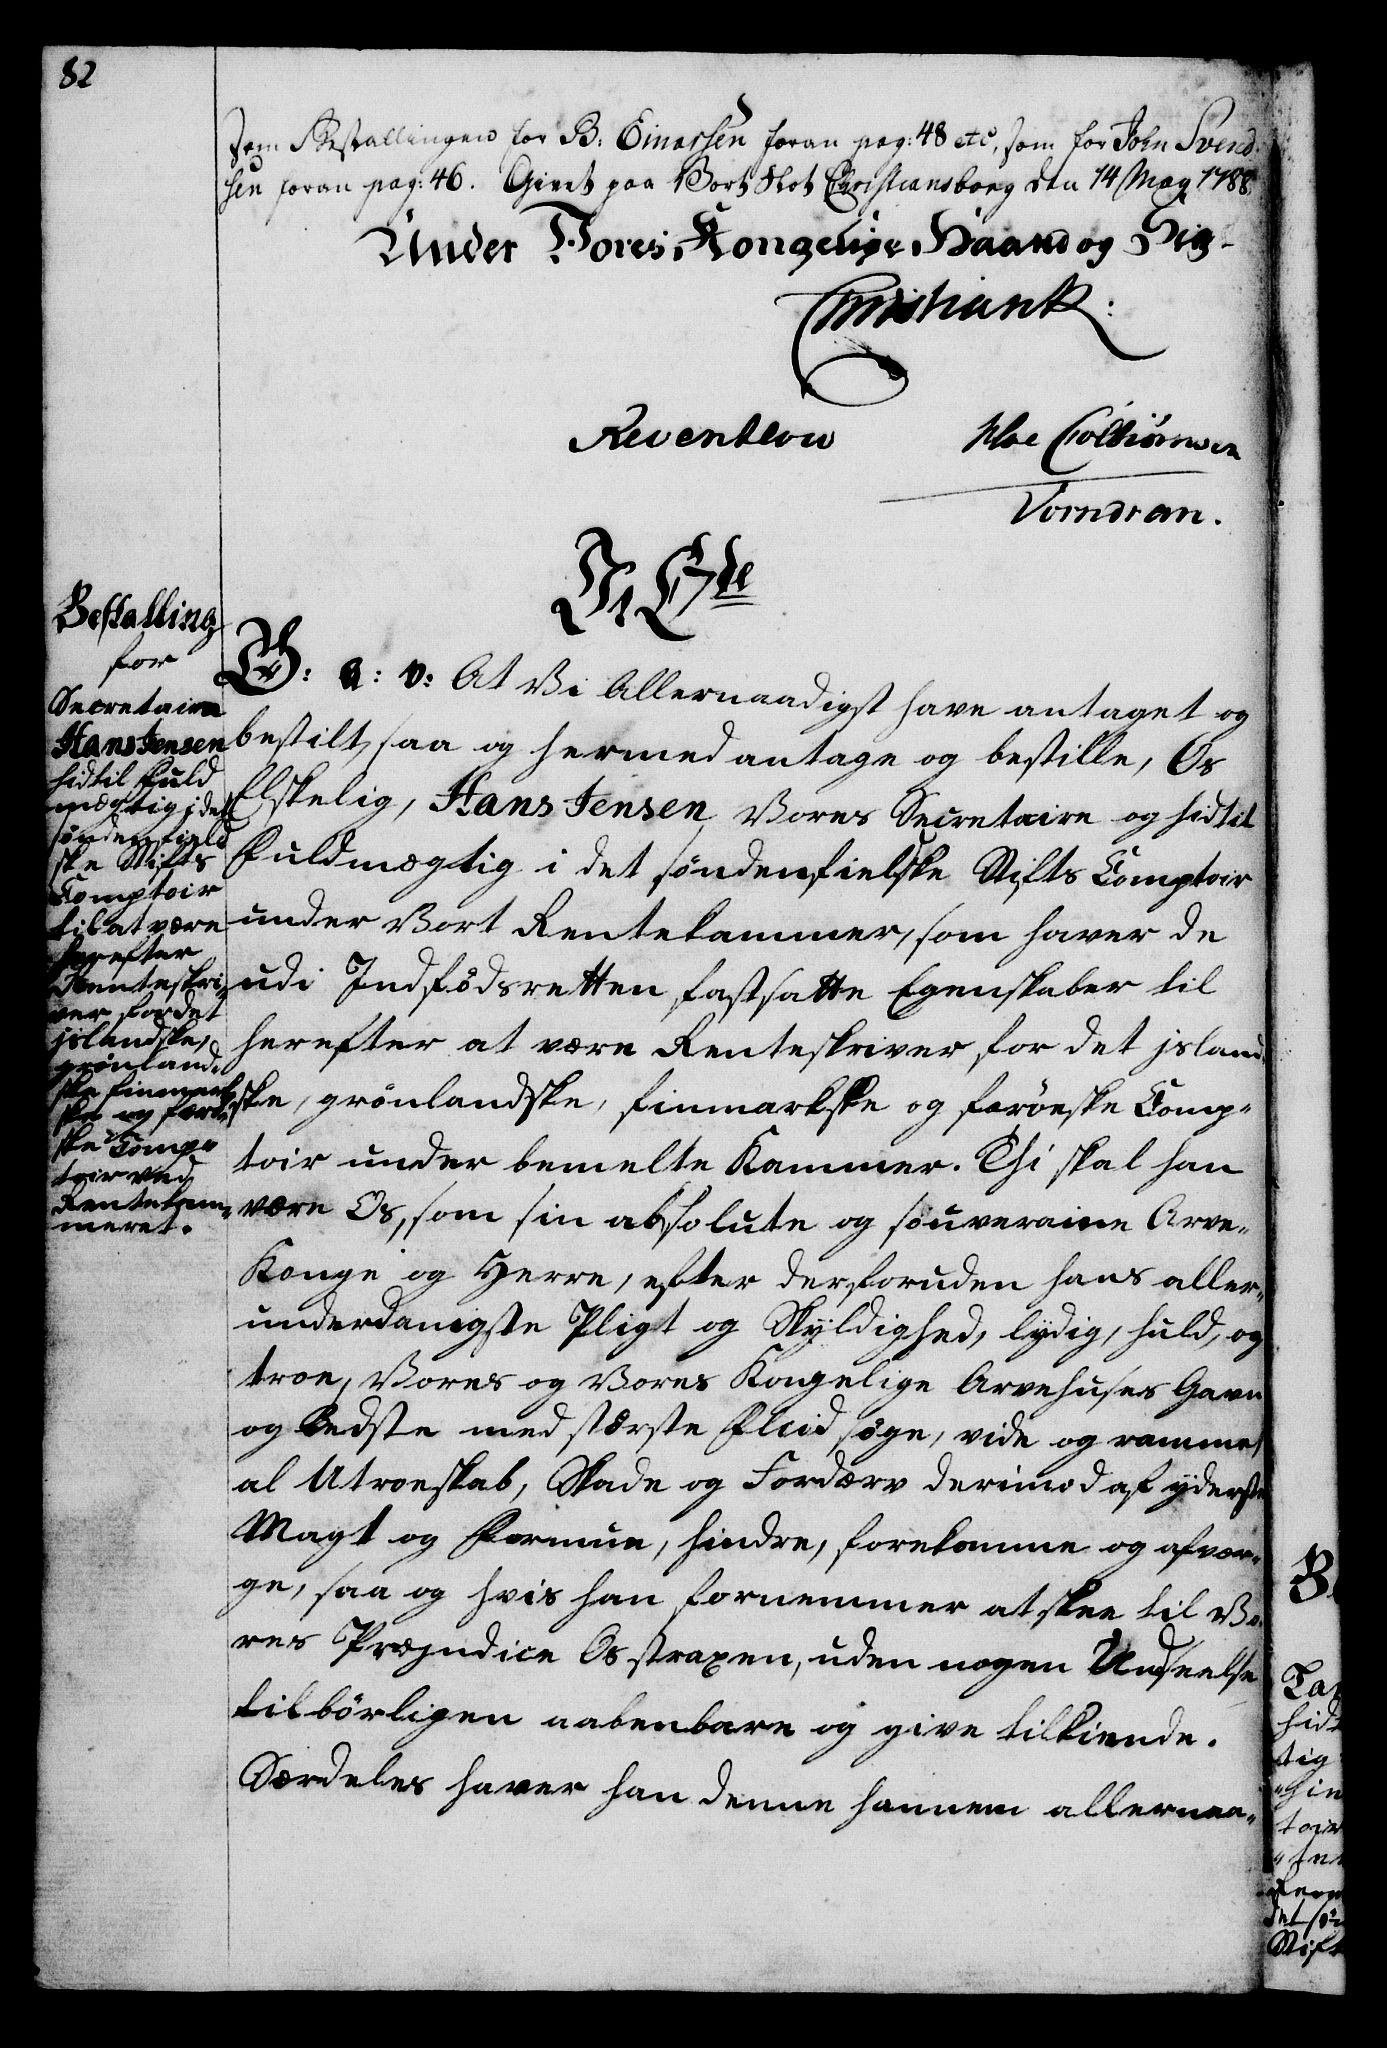 82
som Bestallingen for B: Einarsen foran pag: 48 etc, som for John Svend-
sen foran pag: 46. Givet paa Vort Slot Christiansborg den 14 May 1788
Under Vores Kongelige Haand og Sig-
Christian R:
Reventlow
Vorndran.
Bestalling
for
Secretaire
Hans Jensen
hidtil Fuld
mægtig i det
søndenfield
ske Stifts
Comptoir
til at være
herefter
Renteskri-
ver for det
jslandske,
grønland-
ske finmark-
ske og færø-
ske Comp-
toir ved
Rentekam-
meret.
G: A: V: At Vi Allernaadigst have antaget og
bestilt, saa og hermed antage og bestille, Os
Elskelig, Hans Jensen Vores Secretaire og hidtil
Fuldmægtig i det søndenfielske Stifts Comptoir
under Vort Rentekammer, som haver de
udi Indfødsretten fastsatte Egenskaber til
herefter at være Renteskriver for det jsland-
ske, grönlandske, finmarkske og faröeske Comp-
toir under bemelte Kammer. Thi skal han
være Os, som sin absolute og souveraine Arve-
Konge og Herre, efter derforuden hans aller-
underdanigste Pligt og Skyldighed, lydig, huld, og
troe, Vores og Vores Kongelige Arvehuses Gavn
og Bedste med største Fliid søge, vide og ramme,
al Utroeskab, Skade og Fordærv derimod af yderste
Magt og Formue, hindre, forekomme og afvær-
ge, saa og hvis han fornemmer at skee til Vo-
res Præjudice Os strapen, uden nogen Undseelse
tilbørligen aabenbare og give tilkiende.
Særdeles haver han denne hannem allernaa-